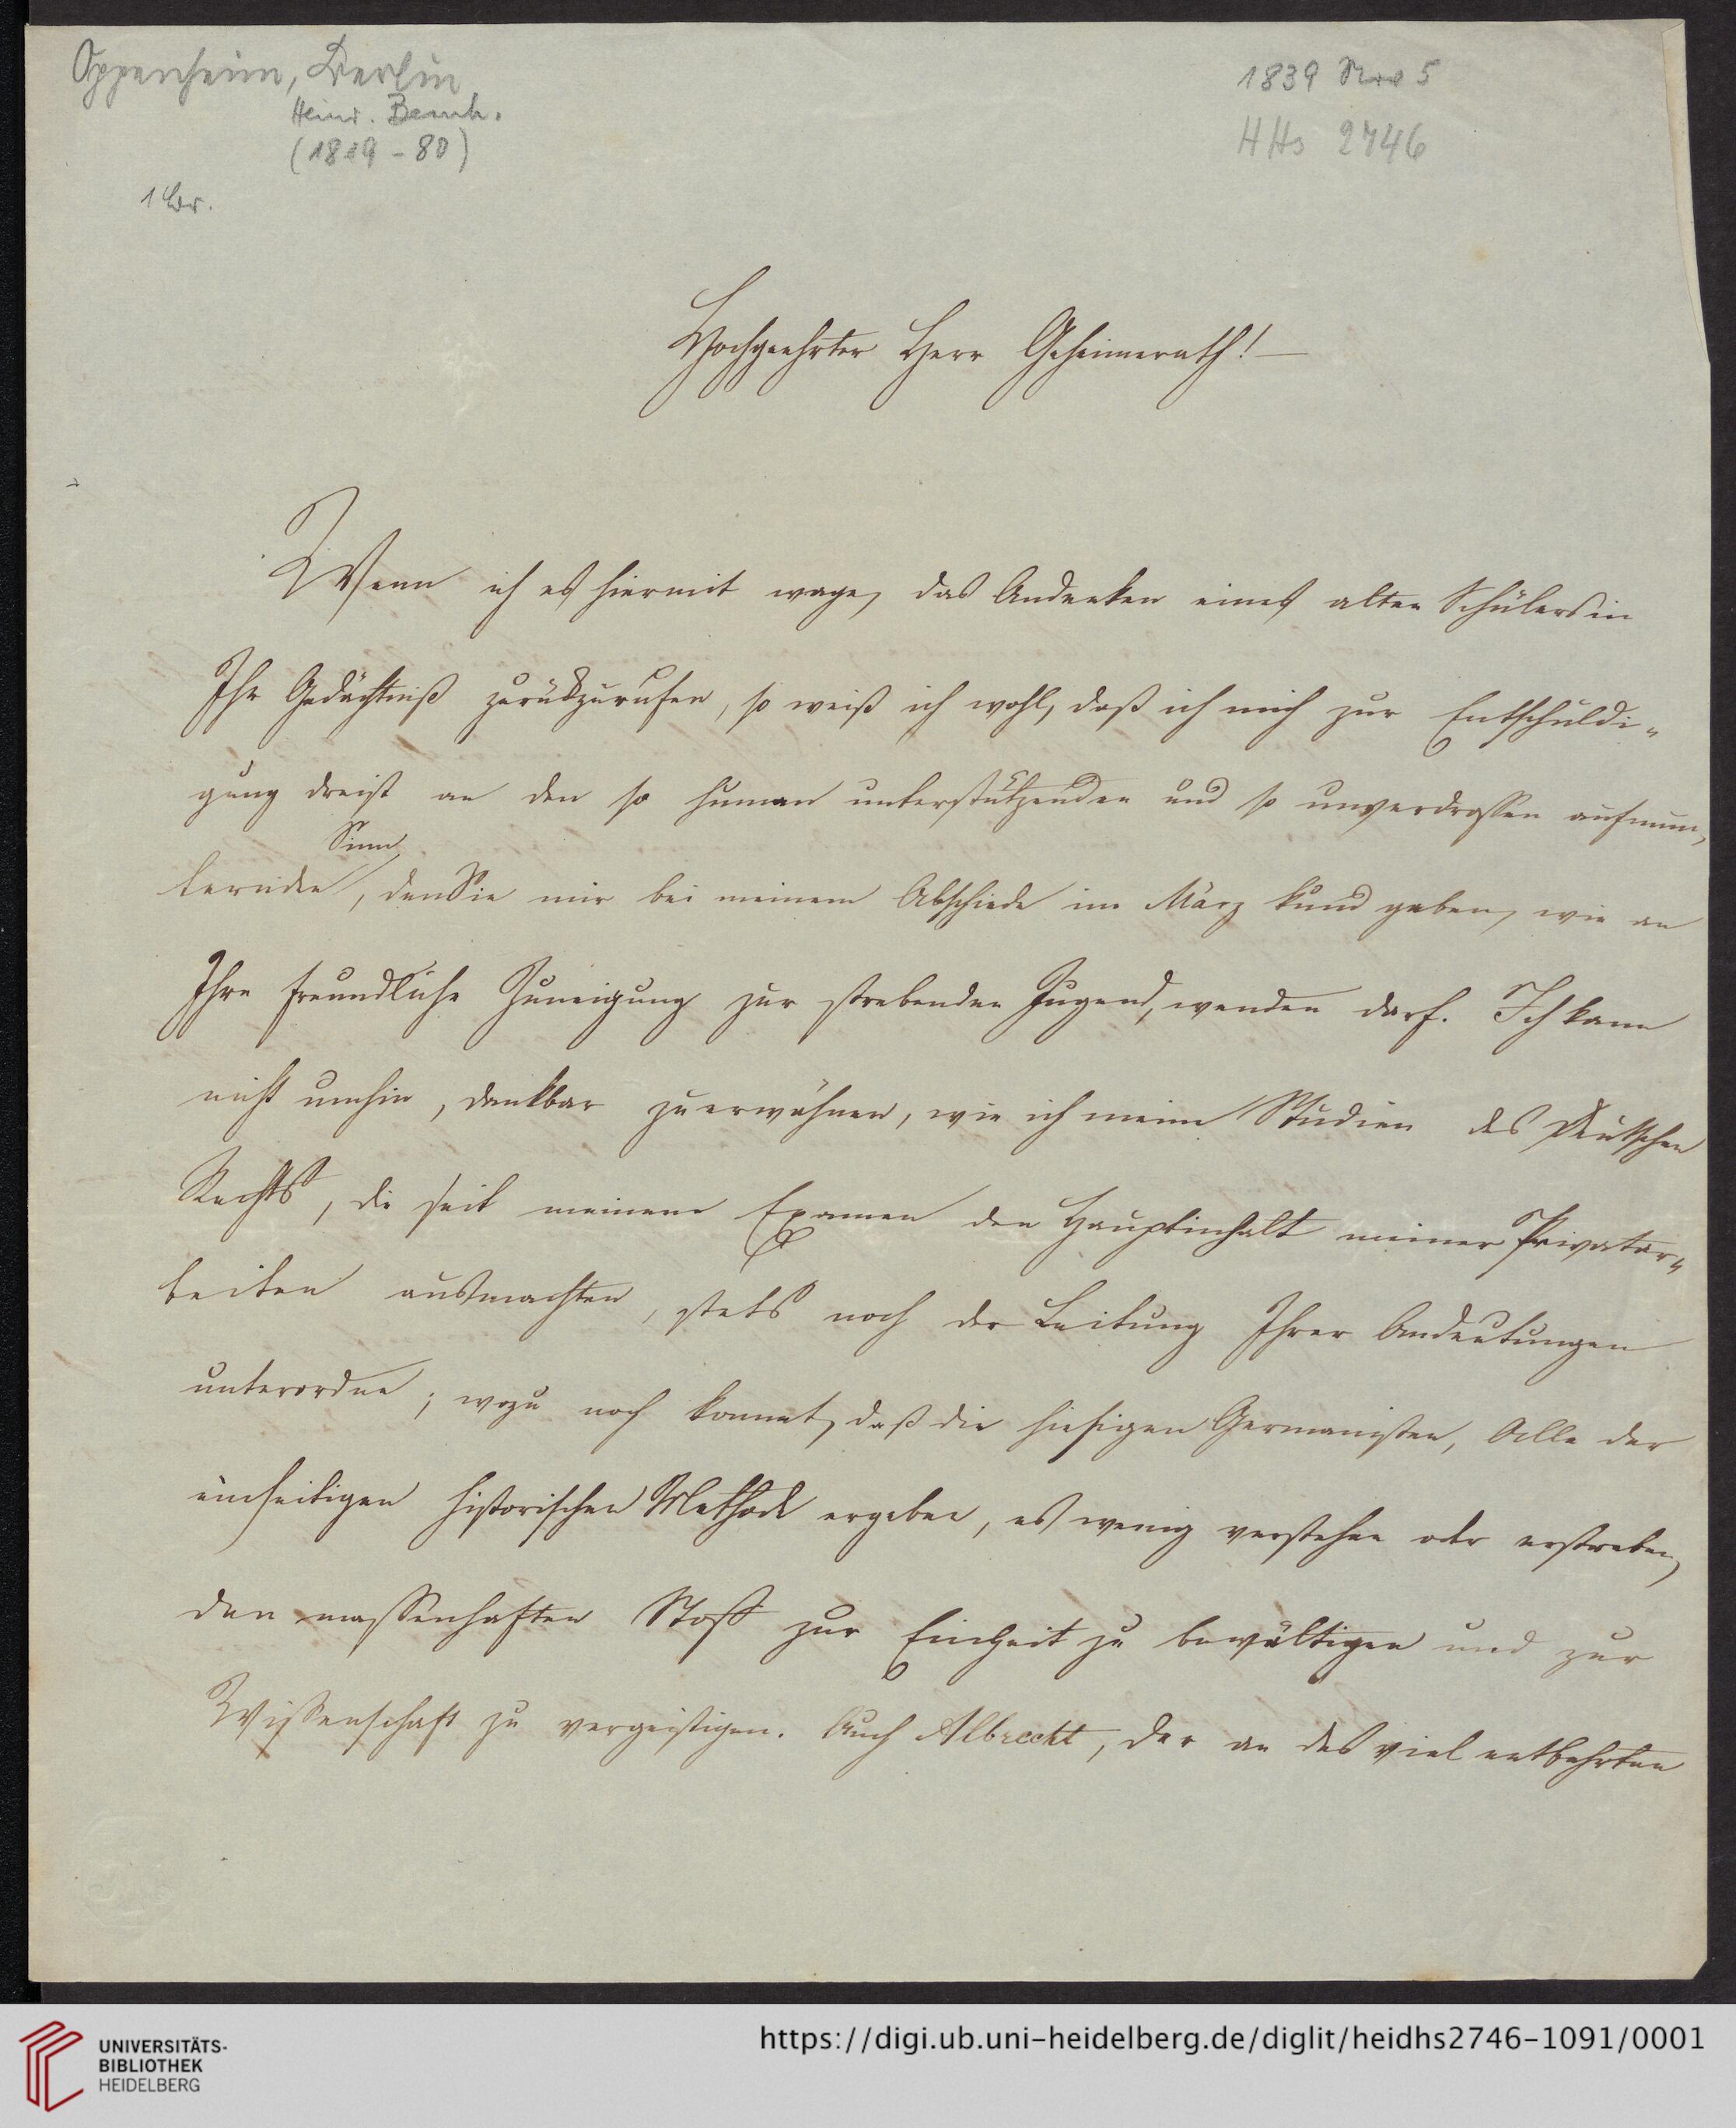 Oppenheim, Berlin
Heinr. Bernh.
(1819-80)
1 Br.
1839 Nov 5
HHs 2746
Hochgeehrter Herr Geheimerath! —
Wenn ich es hiermit wage, das Andenken eines alten Schülers in
Ihr Gedächtniß zurückzurufen, so weiß ich wohl, daß ich mich zur Entschuldi-
gung dreist an den so human unterstützenden und so unverdrossen aufmun-
Sinn
ternden, den Sie mir bei meinem Abschiede im März kund gaben, wie an
Ihre freundliche Zuneigung zur strebenden Jugend, wenden darf. Ich kann
nicht umhin, dankbar zu erwähnen, wie ich meine Studien des Deutschen
Rechts, die seit meinem Examen den Hauptinhalt meiner Privatar-
beiten ausmachten, stets noch der Leitung Ihrer Andeutungen
unterordne; wozu noch kommt, daß die hiesigen Germanisten, Alle der
einseitigen historischen Methode ergeben, es wenig verstehen oder erstreben,
den massenhaften Stoff zur Einheit zu bewältigen und zur
Wissenschaft zu vergeistigen. Auch Albrecht, der an des viel entbehrten
UNIVERSITÄTS-
BIBLIOTHEK
HEIDELBERG
https://digi.ub.uni-heidelberg.de/diglit/heidhs2746-1091/0001